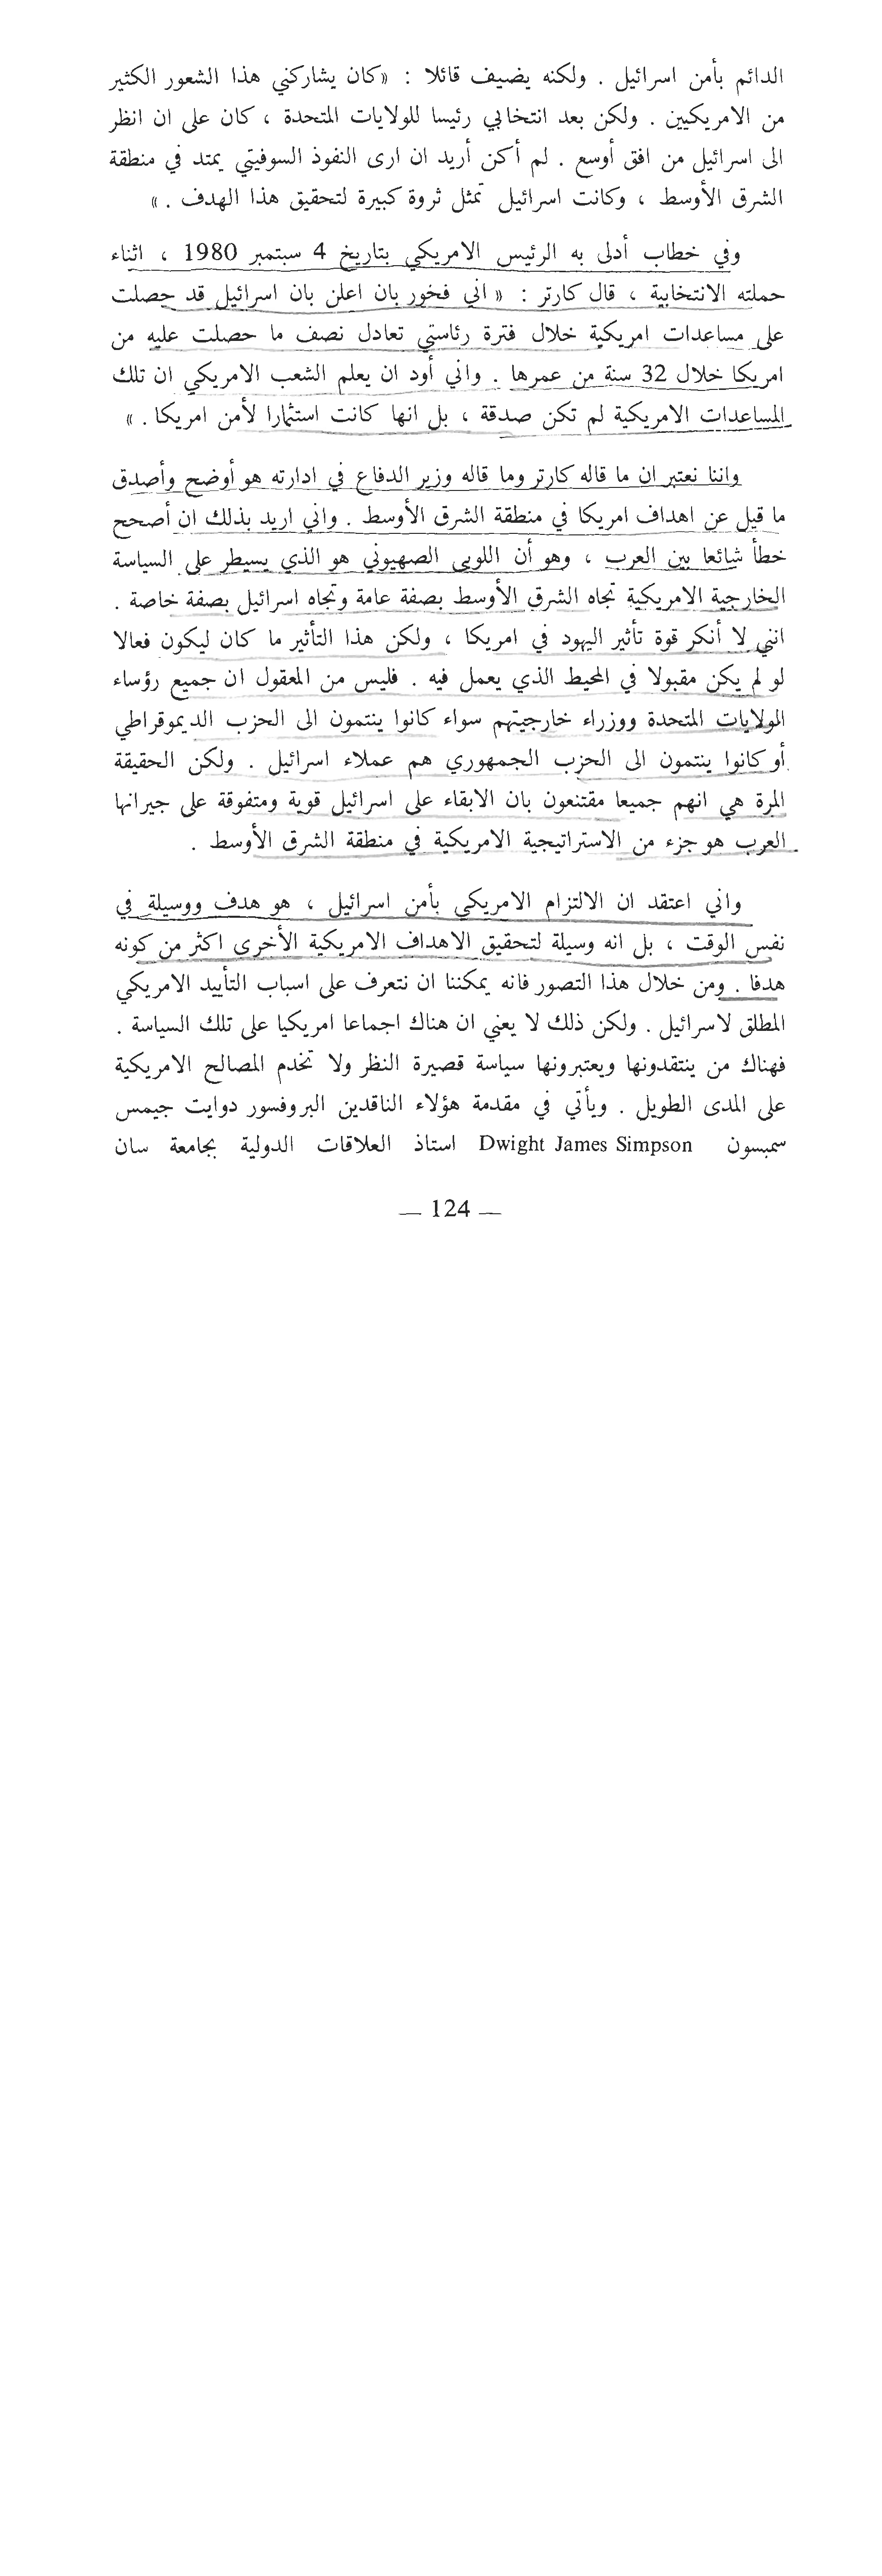 الدائم بأمن اسرائيل . ولكنه يضيف قائلا : «كان يشاركني هذا الشعور الكثير
من الامريكيين . ولكن بعد انتخابي رئيسا للولايات المتحدة ، كان على ان انظر
الى اسرائيل من افق أوسع . لم أكن أريد ان ارى النفوذ السوفيتي يمتد في منطقة
الشرق الأوسط ، وكانت اسرائيل تمثل ثروة كبيرة لتحقيق هذا الهدف . »
وفي خطاب أدلى به الرئيس الامريكي بتاريخ 4 سبتمبر 1980 ، اثناء
حملته الانتخابية ، قال كارتر : « اني فخور بان اعلن بان اسرائيل قد حصلت
على مساعدات امريكية خلال فترة رئاستي تعادل نصف ما حصلت عليه من
امريكا خلال 32 سنة من عمرها . واني أود ان يعلم الشعب الامريكي ان تلك
المساعدات الامريكية لم تكن صدقة ، بل انها كانت استثمارا لأمن امريكا . »
واننا نعتبر ان ما قاله كارتر وما قاله وزير الدفاع في ادارته هو أوضح وأصدق
ما قيل عن اهداف امريكا في منطقة الشرق الأوسط . واني اريد بذلك ان أصحح
خطأ شائعا بين العرب ، وهو أن اللوبي الصهيوني هو الذي يسيطر على السياسة
الخارجية الامريكية تجاه الشرق الأوسط بصفة عامة وتجاه اسرائيل بصفة خاصة .
انني لا أنكر قوة تأثير اليهود في امريكا ، ولكن هذا التأثير ما كان ليكون فعالا
لو لم يكن مقبولا في المحيط الذي يعمل فيه . فليس من المعقول ان جميع رؤساء
الولايات المتحدة ووزراء خارجيتهم سواء كانوا ينتمون الى الحزب الديموقراطي
أو كانوا ينتمون الى الحزب الجمهوري هم عملاء اسرائيل . ولكن الحقيقة
المرة هي انهم جميعا مقتنعون بان الابقاء على اسرائيل قوية ومتفوقة على جيرانها
العرب هو جزء من الاستراتيجية الامريكية في منطقة الشرق الأوسط .
واني اعتقد ان الالتزام الامريكي بأمن اسرائيل ، هو هدف ووسيلة في
نفس الوقت ، بل انه وسيلة لتحقيق الاهداف الامريكية الأخرى اكثر من كونه
هدفا . ومن خلال هذا التصور فانه يمكننا ان نتعرف على اسباب التأييد الامريكي
المطلق لاسرائيل . ولكن ذلك لا يعني ان هناك اجماعا امريكيا على تلك السياسة .
فهناك من ينتقدونها ويعتبرونها سياسة قصيرة النظر ولا تخدم المصالح الامريكية
على المدى الطويل . ويأتي في مقدمة هؤلاء الناقدين البروفسور دوايت جيمس
سمبسون Dwight James Simpson استاذ العلاقات الدولية بجامعة سان
— 124 —